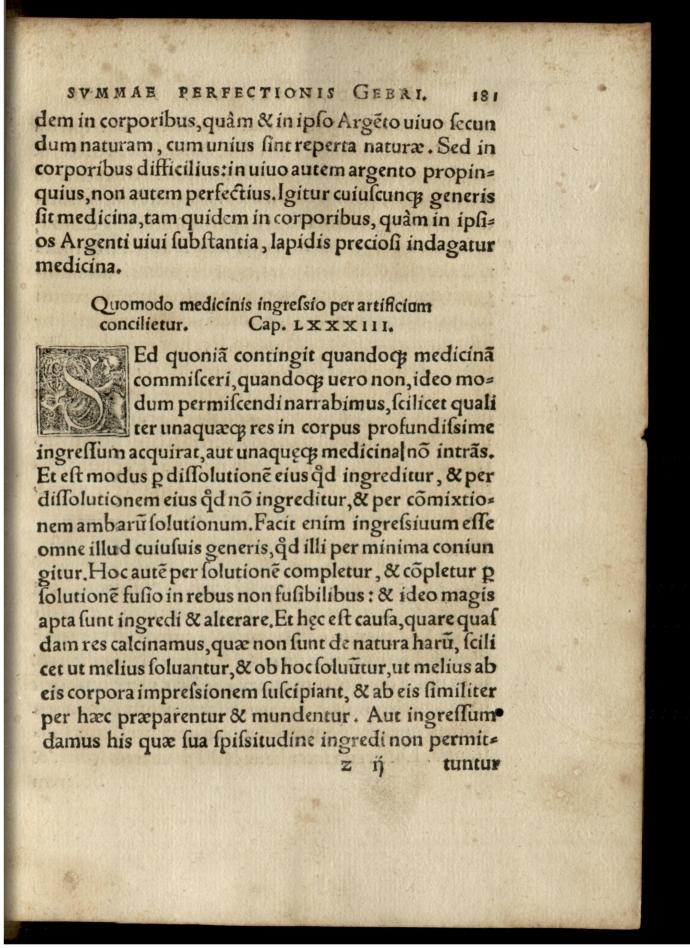 SVMMAE PERFECTIONIS GEBRI. 181
dem in corporibus, quàm & in ipſo Argẽto uiuo ſecun
dum naturam, cum unius ſint reperta naturæ. Sed in
corporibus difficilius: in uiuo autem argento propin⸗
quius, non autem perfectius. Igitur cuiuſcunqꝫ generis
ſit medicina, tam quidem in corporibus, quàm in ipſi⸗
os Argenti uiui ſubſtantia, lapidis precioſi indagatur
medicina.
Quomodo medicinis ingreſsio per artificium
concilietur. Cap. LXXXIII.
SEd quoniã contingit quandoqꝫ medicinã
commiſceri, quandoqꝫ uero non, ideo mo⸗
dum permiſcendi narrabimus, ſcilicet quali
ter unaquæqꝫ res in corpus profundiſsime
ingreſſum acquirat, aut unaquęqꝫ medicina nõ intrãs.
Et eſt modus ꝑ diſſolutionẽ eius qd̃ ingreditur, & per
diſſolutionem eius qd̃ nõ ingreditur, & per cõmixtio⸗
nem ambarũ ſolutionum. Facit enim ingreſsiuum eſſe
omne illud cuiuſuis generis, qd̃ illi per minima coniun
gitur. Hoc autẽ per ſolutionẽ completur, & cõpletur ꝑ
ſolutionẽ fuſio in rebus non fuſibilibus: & ideo magis
apta ſunt ingredi & alterare. Et hęc eſt cauſa, quare quaſ
dam res calcinamus, quæ non ſunt de natura harũ, ſcili
cet ut melius ſoluantur, & ob hoc ſoluũtur, ut melius ab
eis corpora impreſsionem ſuſcipiant, & ab eis ſimiliter
per hæc præparentur & mundentur. Aut ingreſſum
damus his quæ ſua ſpiſsitudine ingredi non permit⸗
z ij tuntur